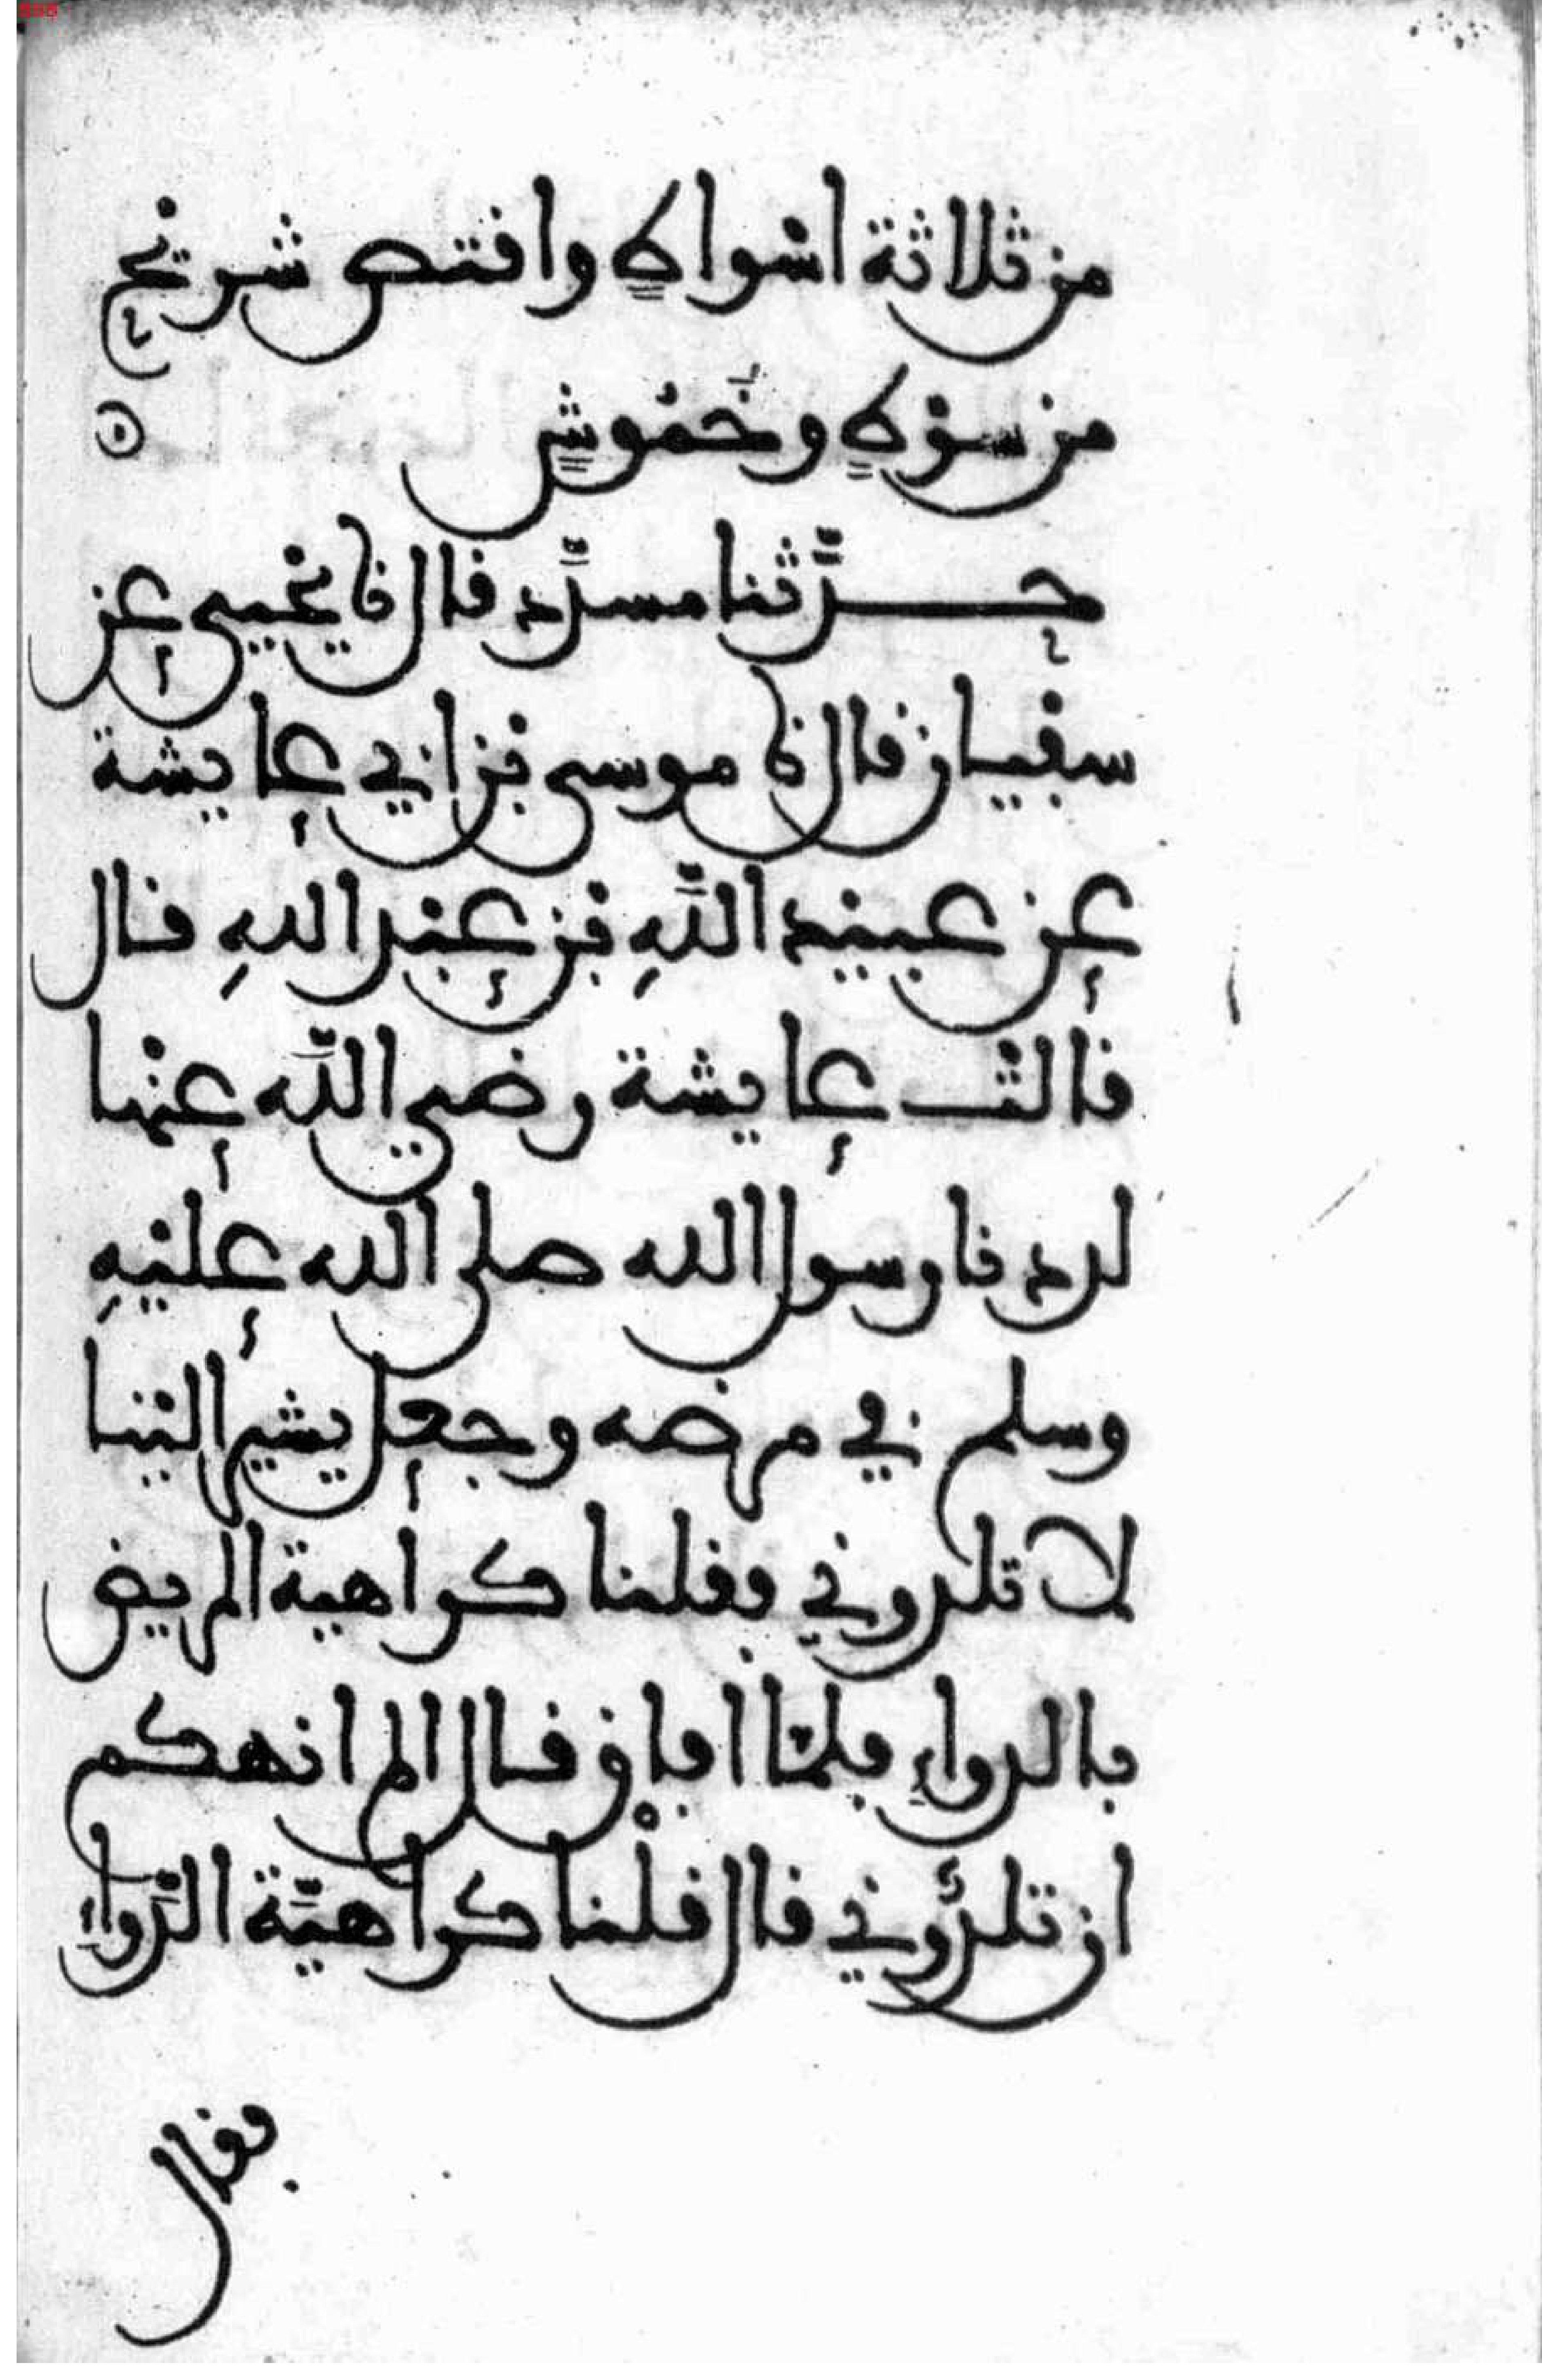 من ثلاثة اسواط واقتص شريح
من سوْطٍ وخُمُوشٍ ه
حدَّثنا مسدَّد قال نا يحيى عن
سفيان قال نا موسى بن ابي عايشة
عن عبيد اللَّهِ بن عبد اللهِ قال
قالت عايشة رضي اللَّه عنها
لددنا رسول الله صلى الله عليْهِ
وسلم في مرضه وجعل يشير الينا
لا تلدوني فقلنا كراهية المريض
بالدواءِ فلمَّا افاق قال الم انهكم
ان تلدُّوني قال قلْنا كراهيَّة الدَّواءِ
فقال